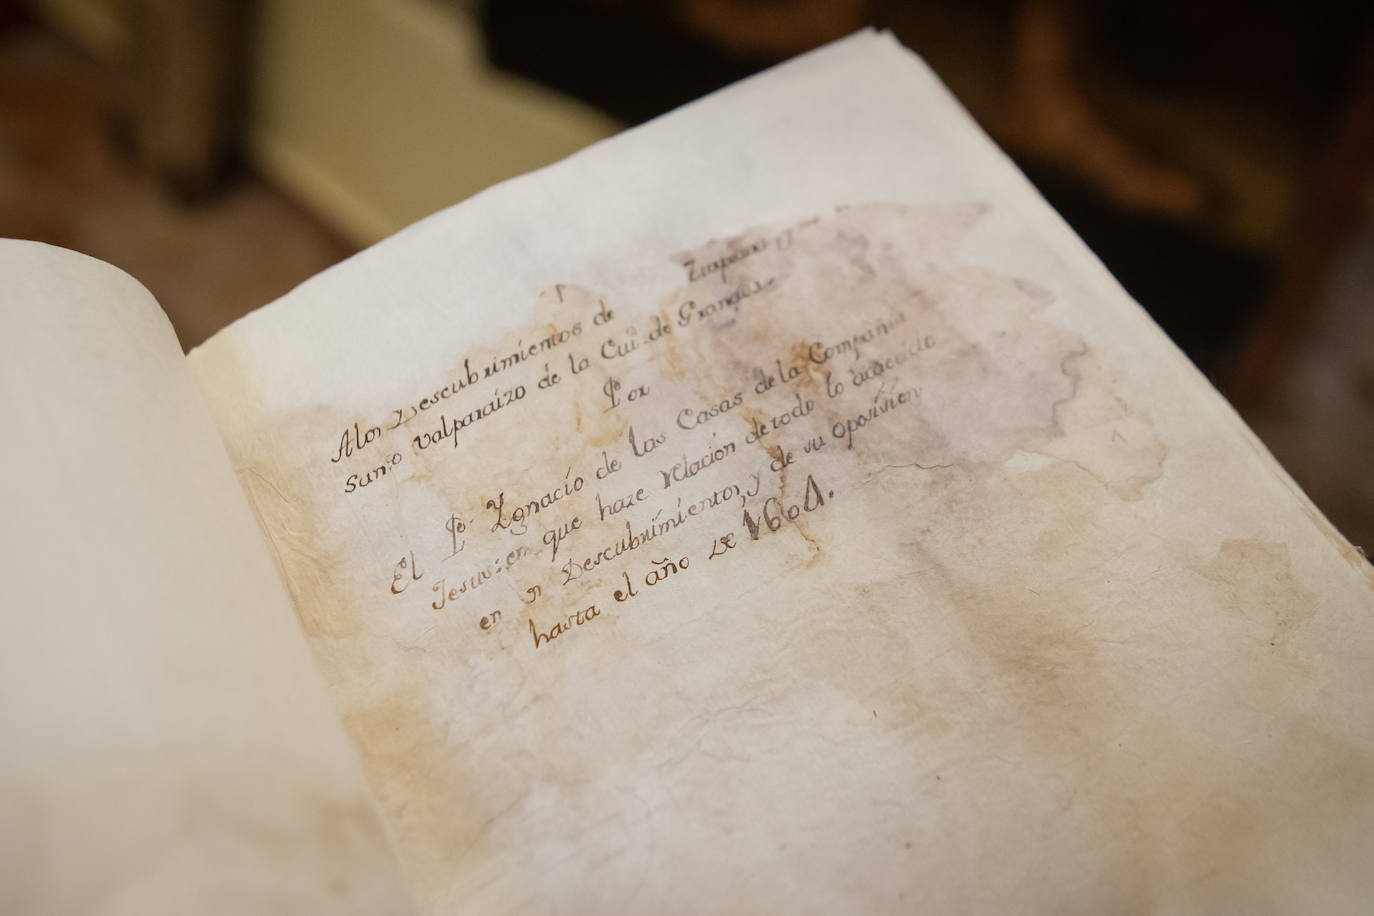 A los Descubrimientos de
Santo valparaizo de la Ciu. de Granada
Por
El P. Ygnacio de las Casas de la Compañia
Jesus: en que haze relacion de todo lo
en Descubrimientos, y de su oposision
hasta el año De 1604.